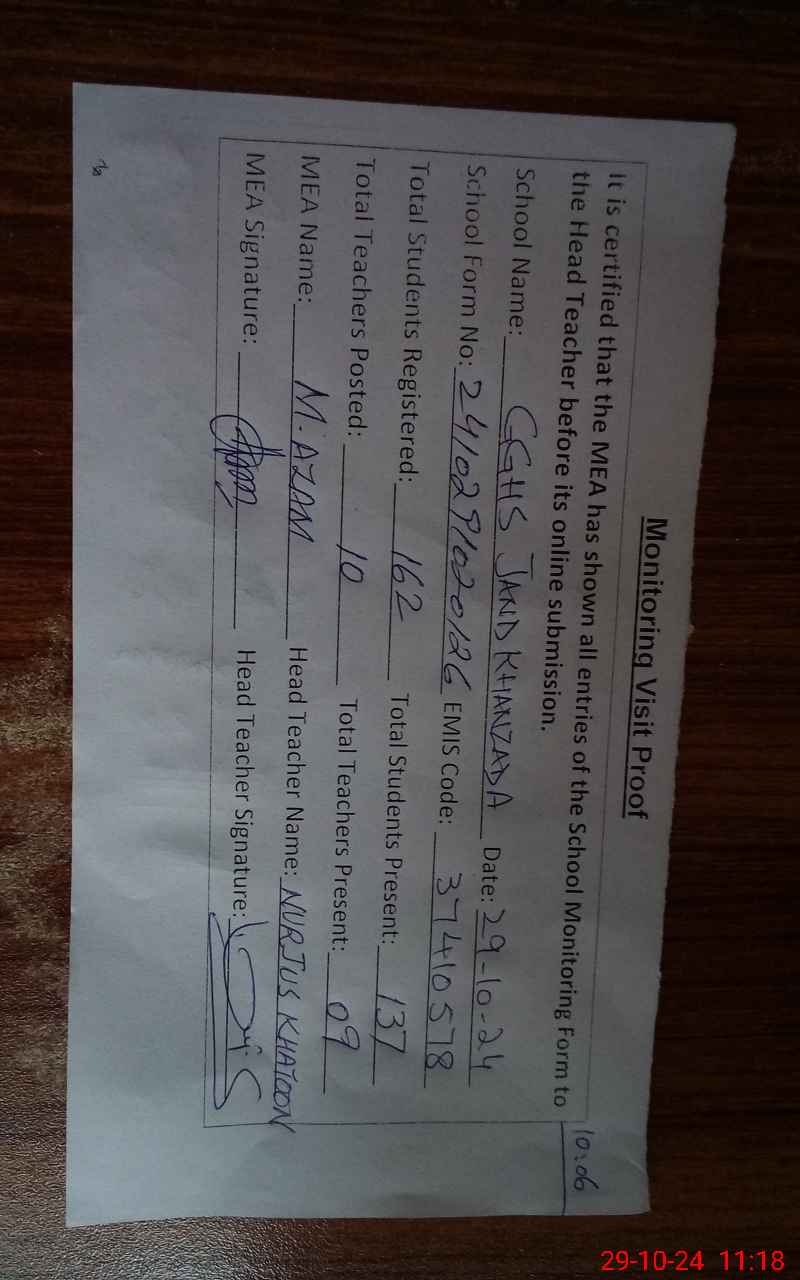 Monitoring Visit Proof
10:06
It is certified that the MEA has shown all entries of the School Monitoring Form to
the Head Teacher before its online submission.
School Name: GGHS JAND KHANZADA Date: 29-10-24
School Form No: 2410291020126 EMIS Code: 37410578
Total Students Registered: 162 Total Students Present: 137
Total Teachers Posted: 10 Total Teachers Present: 09
MEA Name: M. AZAM Head Teacher Name: NURJUS KHATOON
MEA Signature: Head Teacher Signature:
29-10-24 11:18